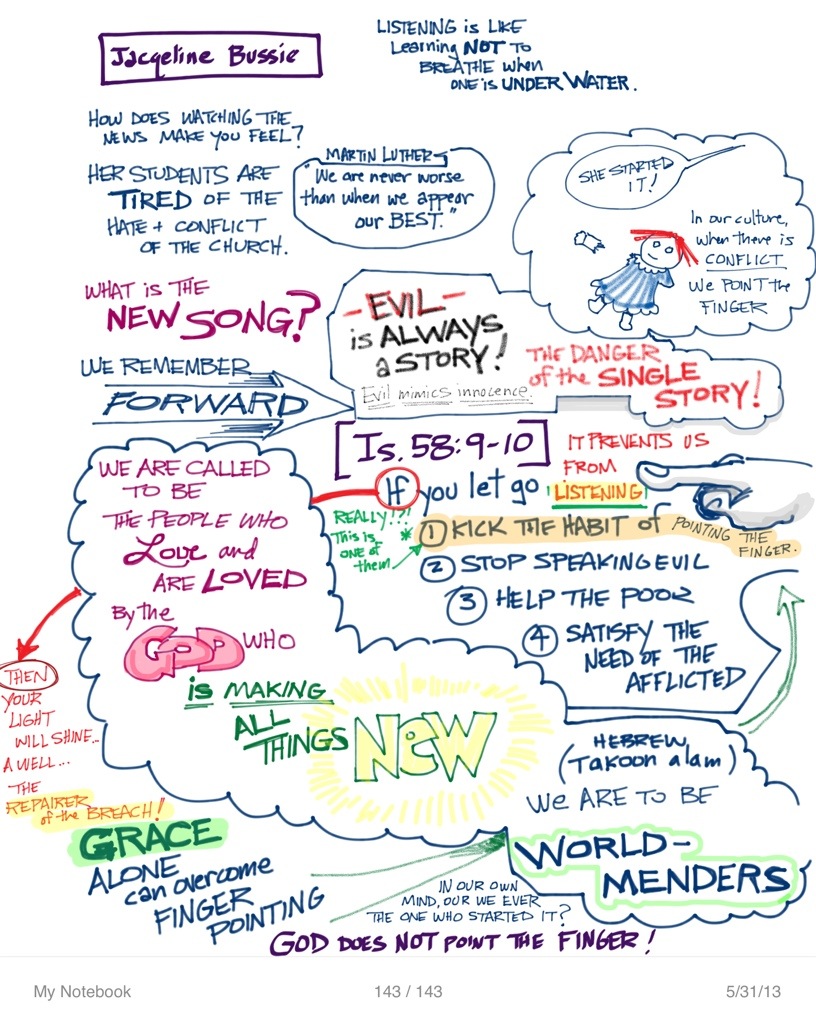 Jacqeline Bussie
LISTENING is LIKE
Learning NOT TO
BREATHE when
ONE is UNDER WATER.
HOW DOES WATCHING THE
NEWS MAKE YOU FEEL?
HER STUDENTS ARE
TIRED OF THE
HATE + CONFLICT
OF THE CHURCH.
MARTIN LUTHER
"We are never worse
than when we appear
our BEST."
SHE STARTED
IT!
In our culture,
when there is
CONFLICT
We POINT the
FINGER
WHAT IS THE
NEW SONG?
WE REMEMBER
FORWARD
-EVIL-
is ALWAYS
a STORY!
Evil mimics innocence.
THE DANGER
of the SINGLE
STORY!
[Is. 58:9-10]
IT PREVENTS US
FROM
LISTENING!
If you let go
REALLY!?!
This is
ONE of
them
*
① KICK THE HABIT of POINTING THE
FINGER.
② STOP SPEAKING EVIL
③ HELP THE POOR
④ SATISFY THE
NEED OF THE
AFFLICTED
WE ARE CALLED
TO BE
THE PEOPLE WHO
Love and
ARE LOVED
By the
GOD WHO
is MAKING
ALL
THINGS NEW
THEN
YOUR
LIGHT
WILL SHINE...
A WELL...
THE
REPAIRER
of the BREACH!
HEBREW
(Takoon alam)
WE ARE TO BE
WORLD-
MENDERS
GRACE
ALONE
can overcome
FINGER
POINTING
IN OUR OWN
MIND, OUR WE EVER
THE ONE WHO STARTED IT?
GOD DOES NOT POINT THE FINGER!
My Notebook
143 / 143
5/31/13